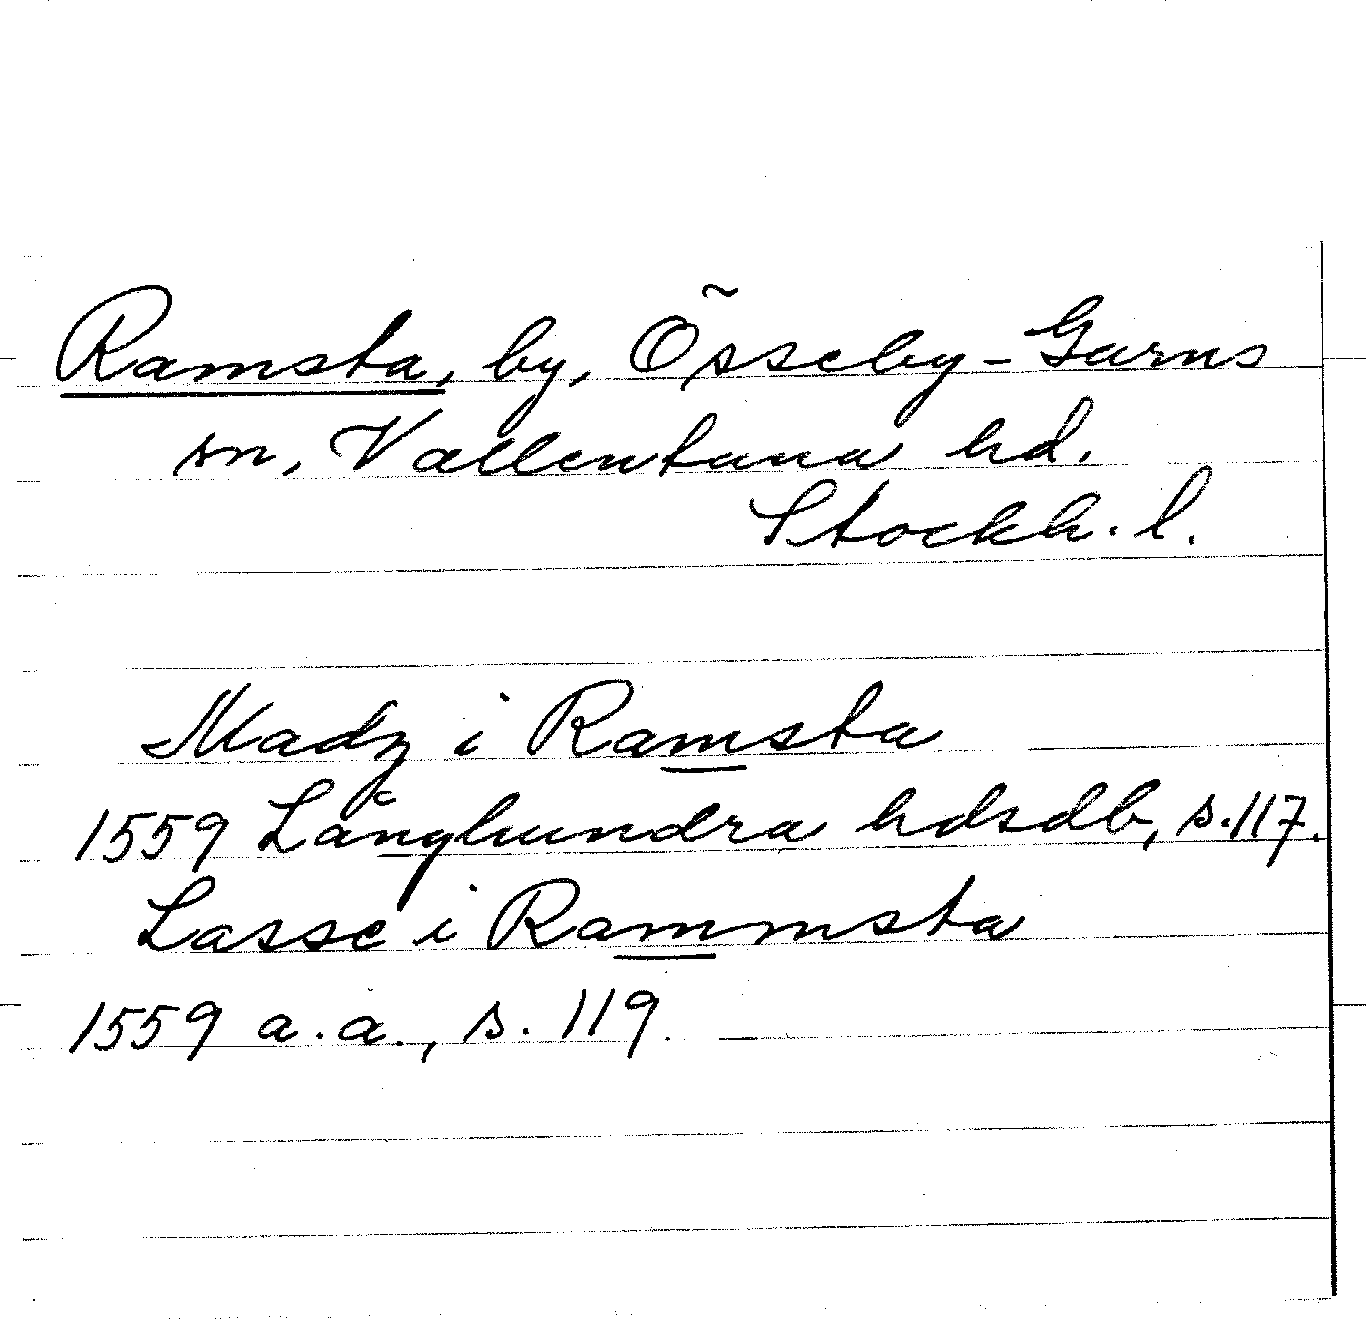 Ramsta, by, Össeby-Garns
sn, Vallentuna hd.
Stockh. l.
Madz i Ramsta
1559 Långhundra hdsdb, s.117.
Lasse i Rammsta
1559 a.a., s. 119.